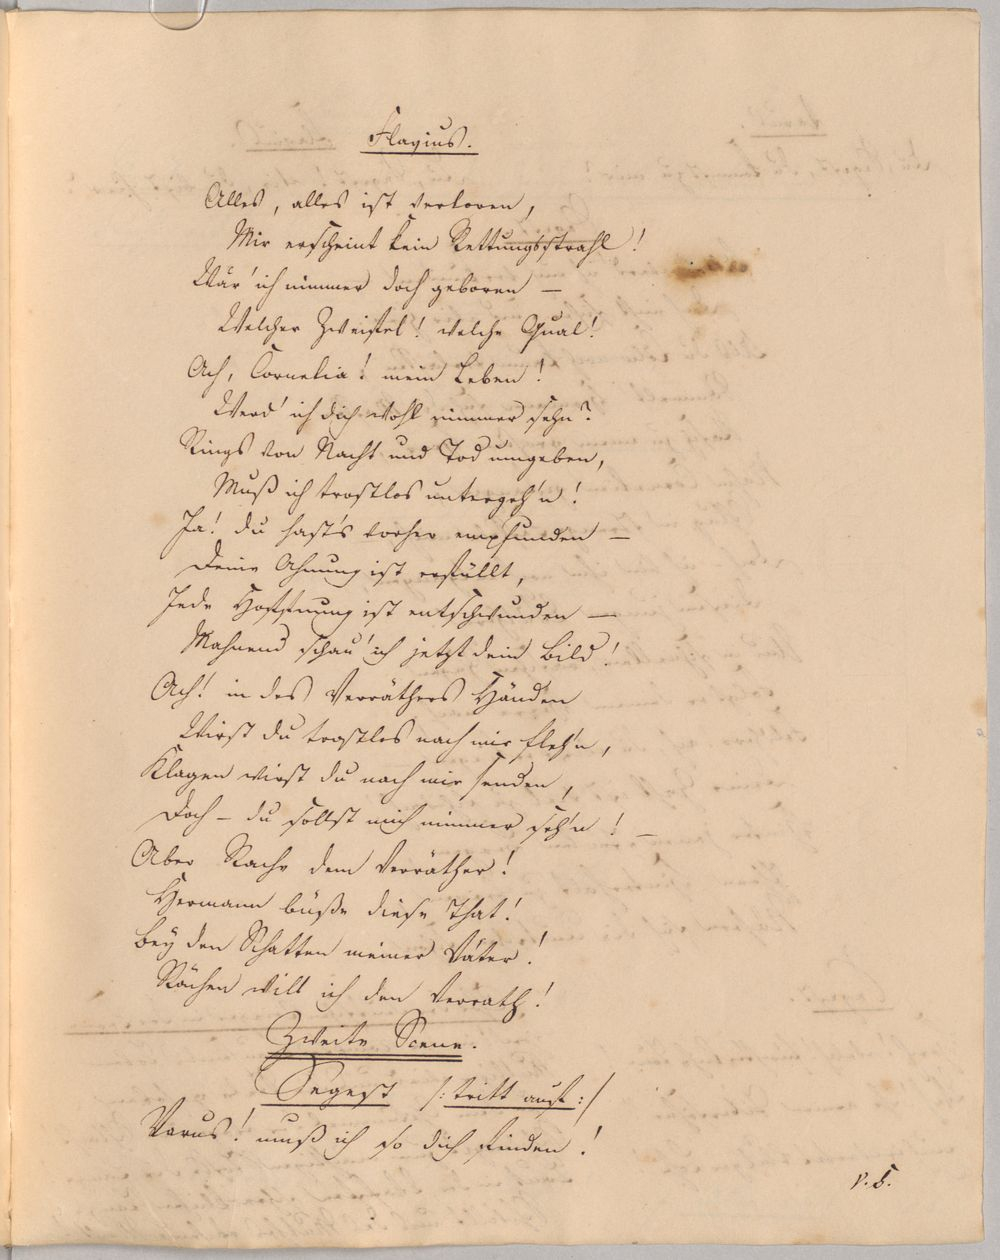 Flavius.
Alles, alles ist verloren,
Mir erscheint kein Rettungsstrahl!
Wär' ich nimmer doch geboren —
Welcher Zweifel! welche Qual!
Ach, Cornelia! mein Leben!
Werd' ich dich wohl nimmer sehn?
Rings von Nacht und Tod umgeben,
Muß ich trostlos untergeh'n!
Ja! du hast's vorher empfunden —
Deine Ahnung ist erfüllt,
Jede Hoffnung ist entschwunden —
Mahnend schau' ich jetzt dein Bild!
Ach! in des Verräthers Händen
Wirst du trostlos nach mir fleh'n,
Klagen wirst du nach mir senden,
Doch – du sollst mich nimmer seh'n! —
Aber Rache dem Verräther!
Hermann büße diese That!
Bey den Schatten meiner Väter!
Rächen will ich den Verrath!
Zweite Scene.
Segest /: tritt auf :/
Varus! muß ich so dich finden!